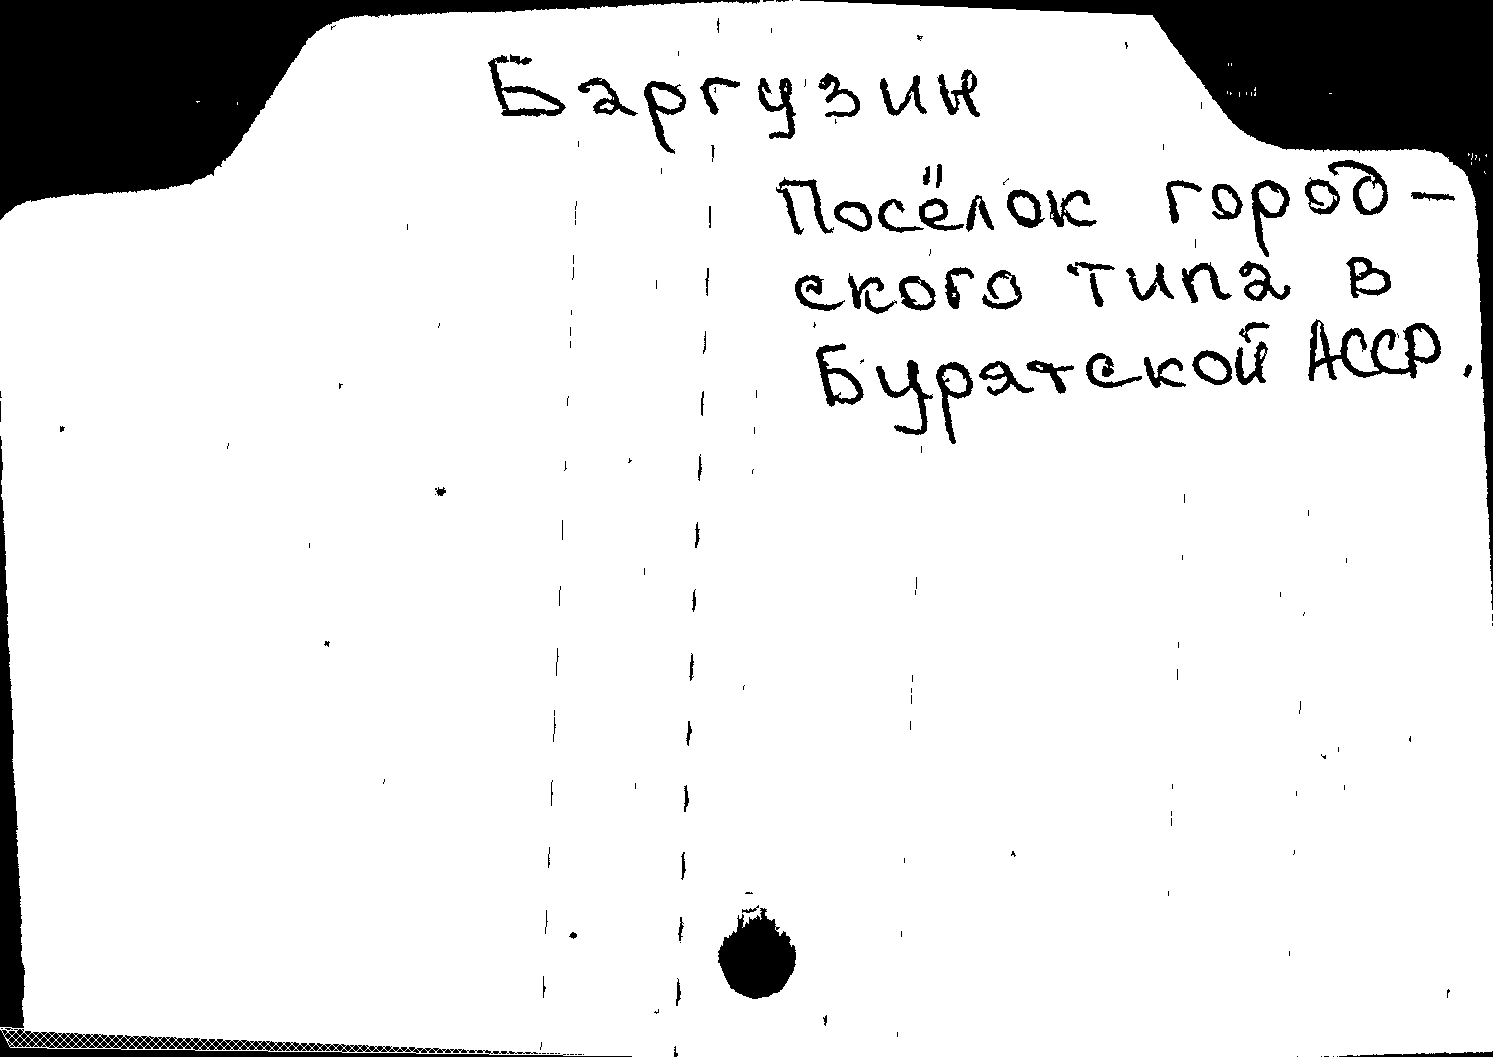 Баргузин
Посёлок город-
ского типа в
Бурятской АССР.